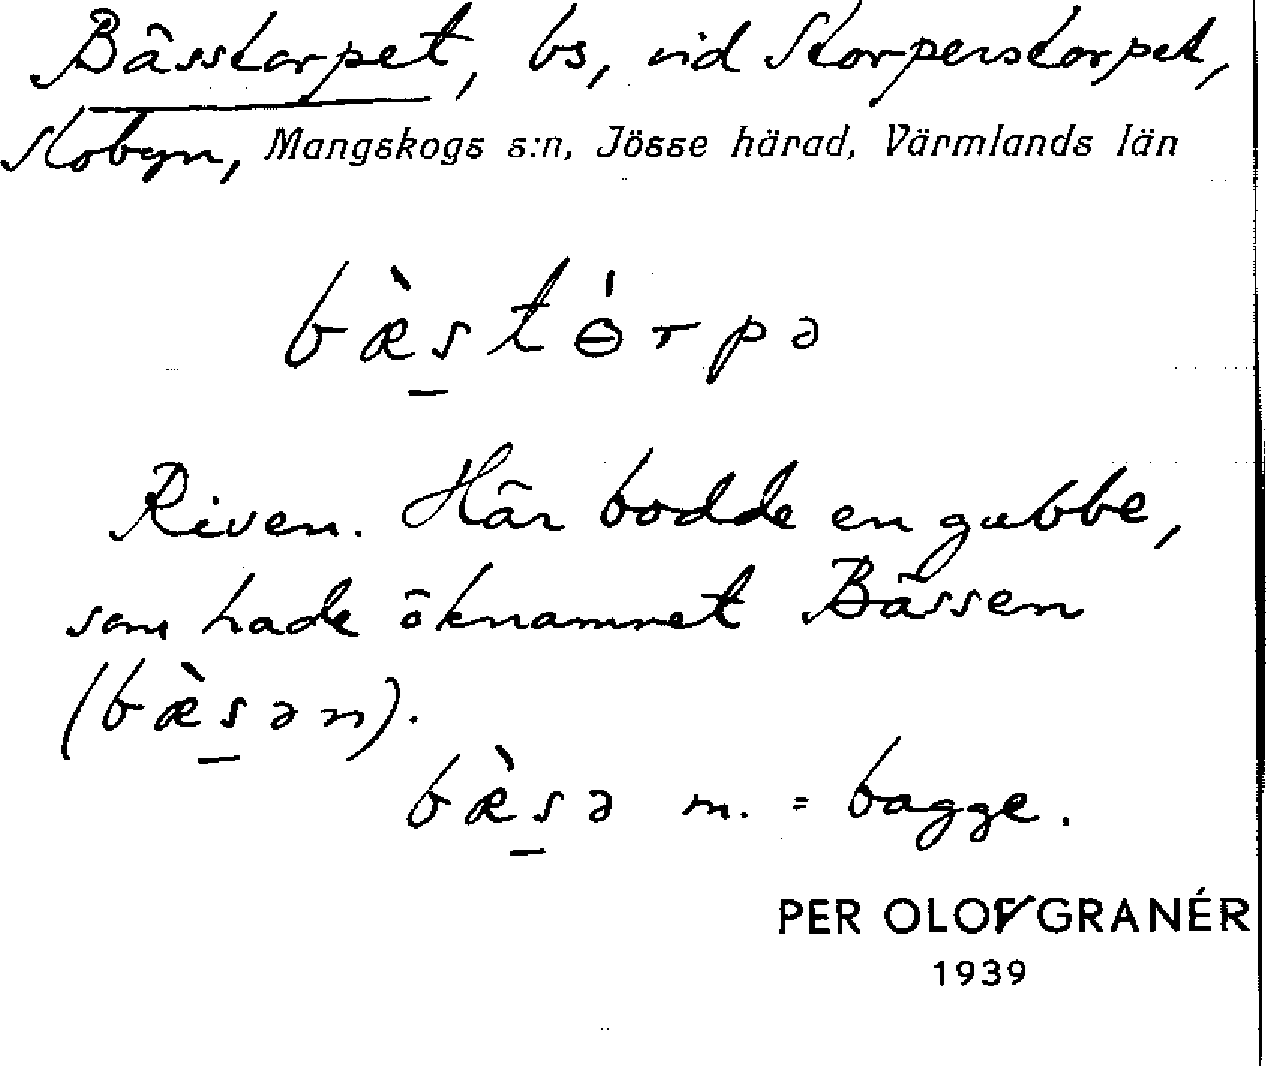 Bässtorpet, bs, vid Storperstorpet,
Slobyn, Mangskogs s:n, Jösse härad, Värmlands län
bæ̀s̲tɵ́rpə
Riven. Här bodde en gubbe,
som hade öknamnet Bässen
(bæ̀s̲ən).
bæ̀s̲ə m. = bagge.
PER OLOV GRANÉR
1939